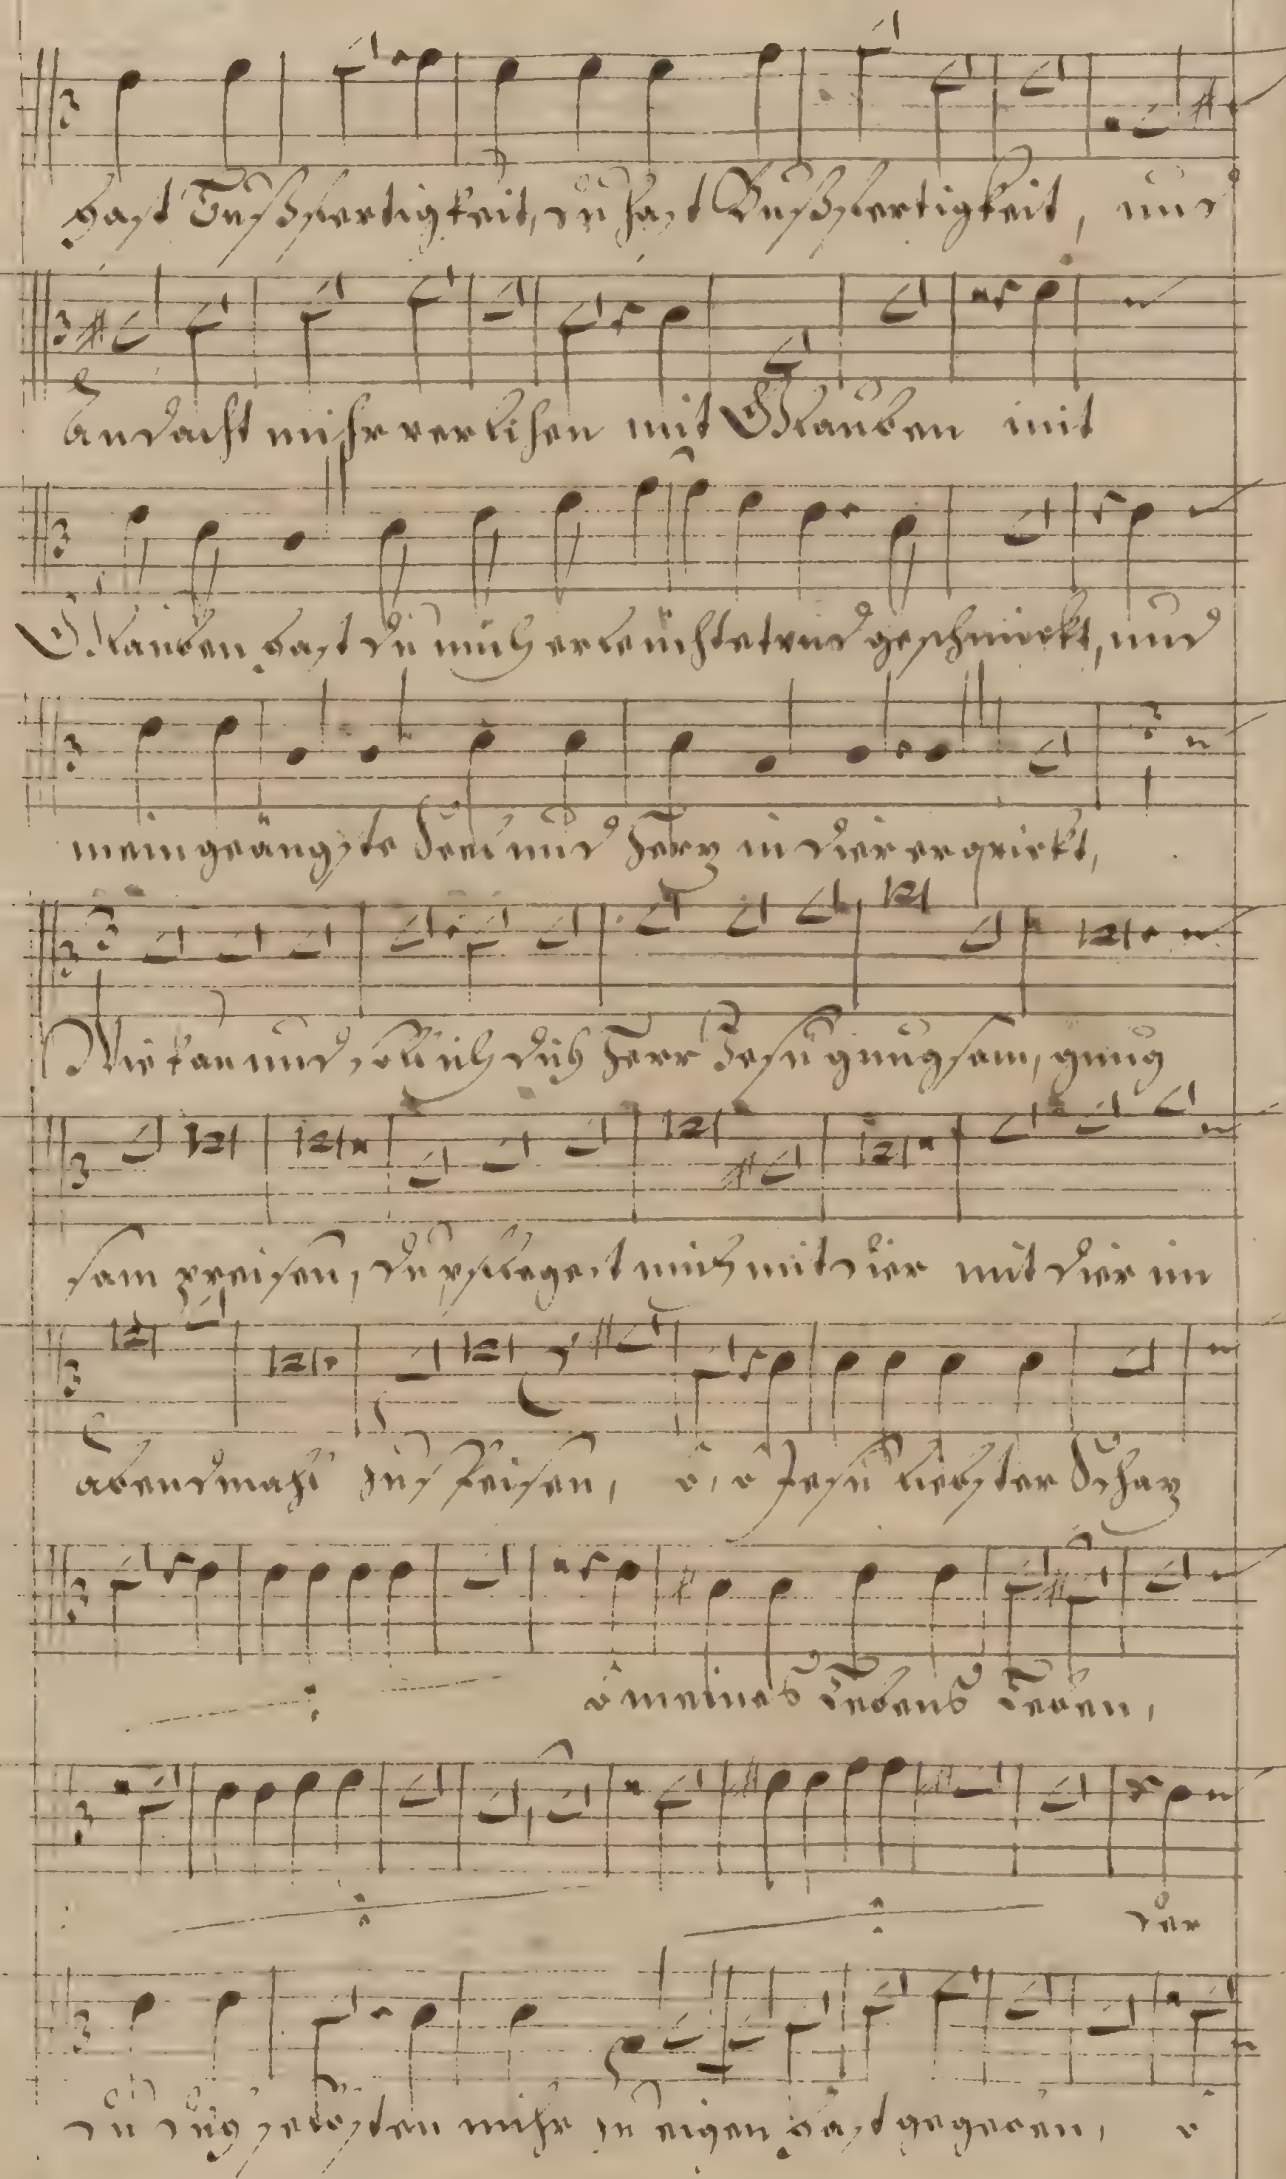 hast Bußfertigkeit, du hast Bußfertigkeit, und
andacht mihr verlihen mit Glauben mit
Glauben hast du mich erleuchtet vnd geschmickt, und
mein geängste Seel und Herz in dier erqvickt,
Wie kan und soll ich dich Herr Jesu gnugsam, gnug
sam preisen, du pflegest mich mit dier mit dier im
abendmahl zu speisen, o, o Jesu liebster Schaz
o meines Lebens Leben,
der
du dich selbsten mihr zu eigen hast gegeben, o